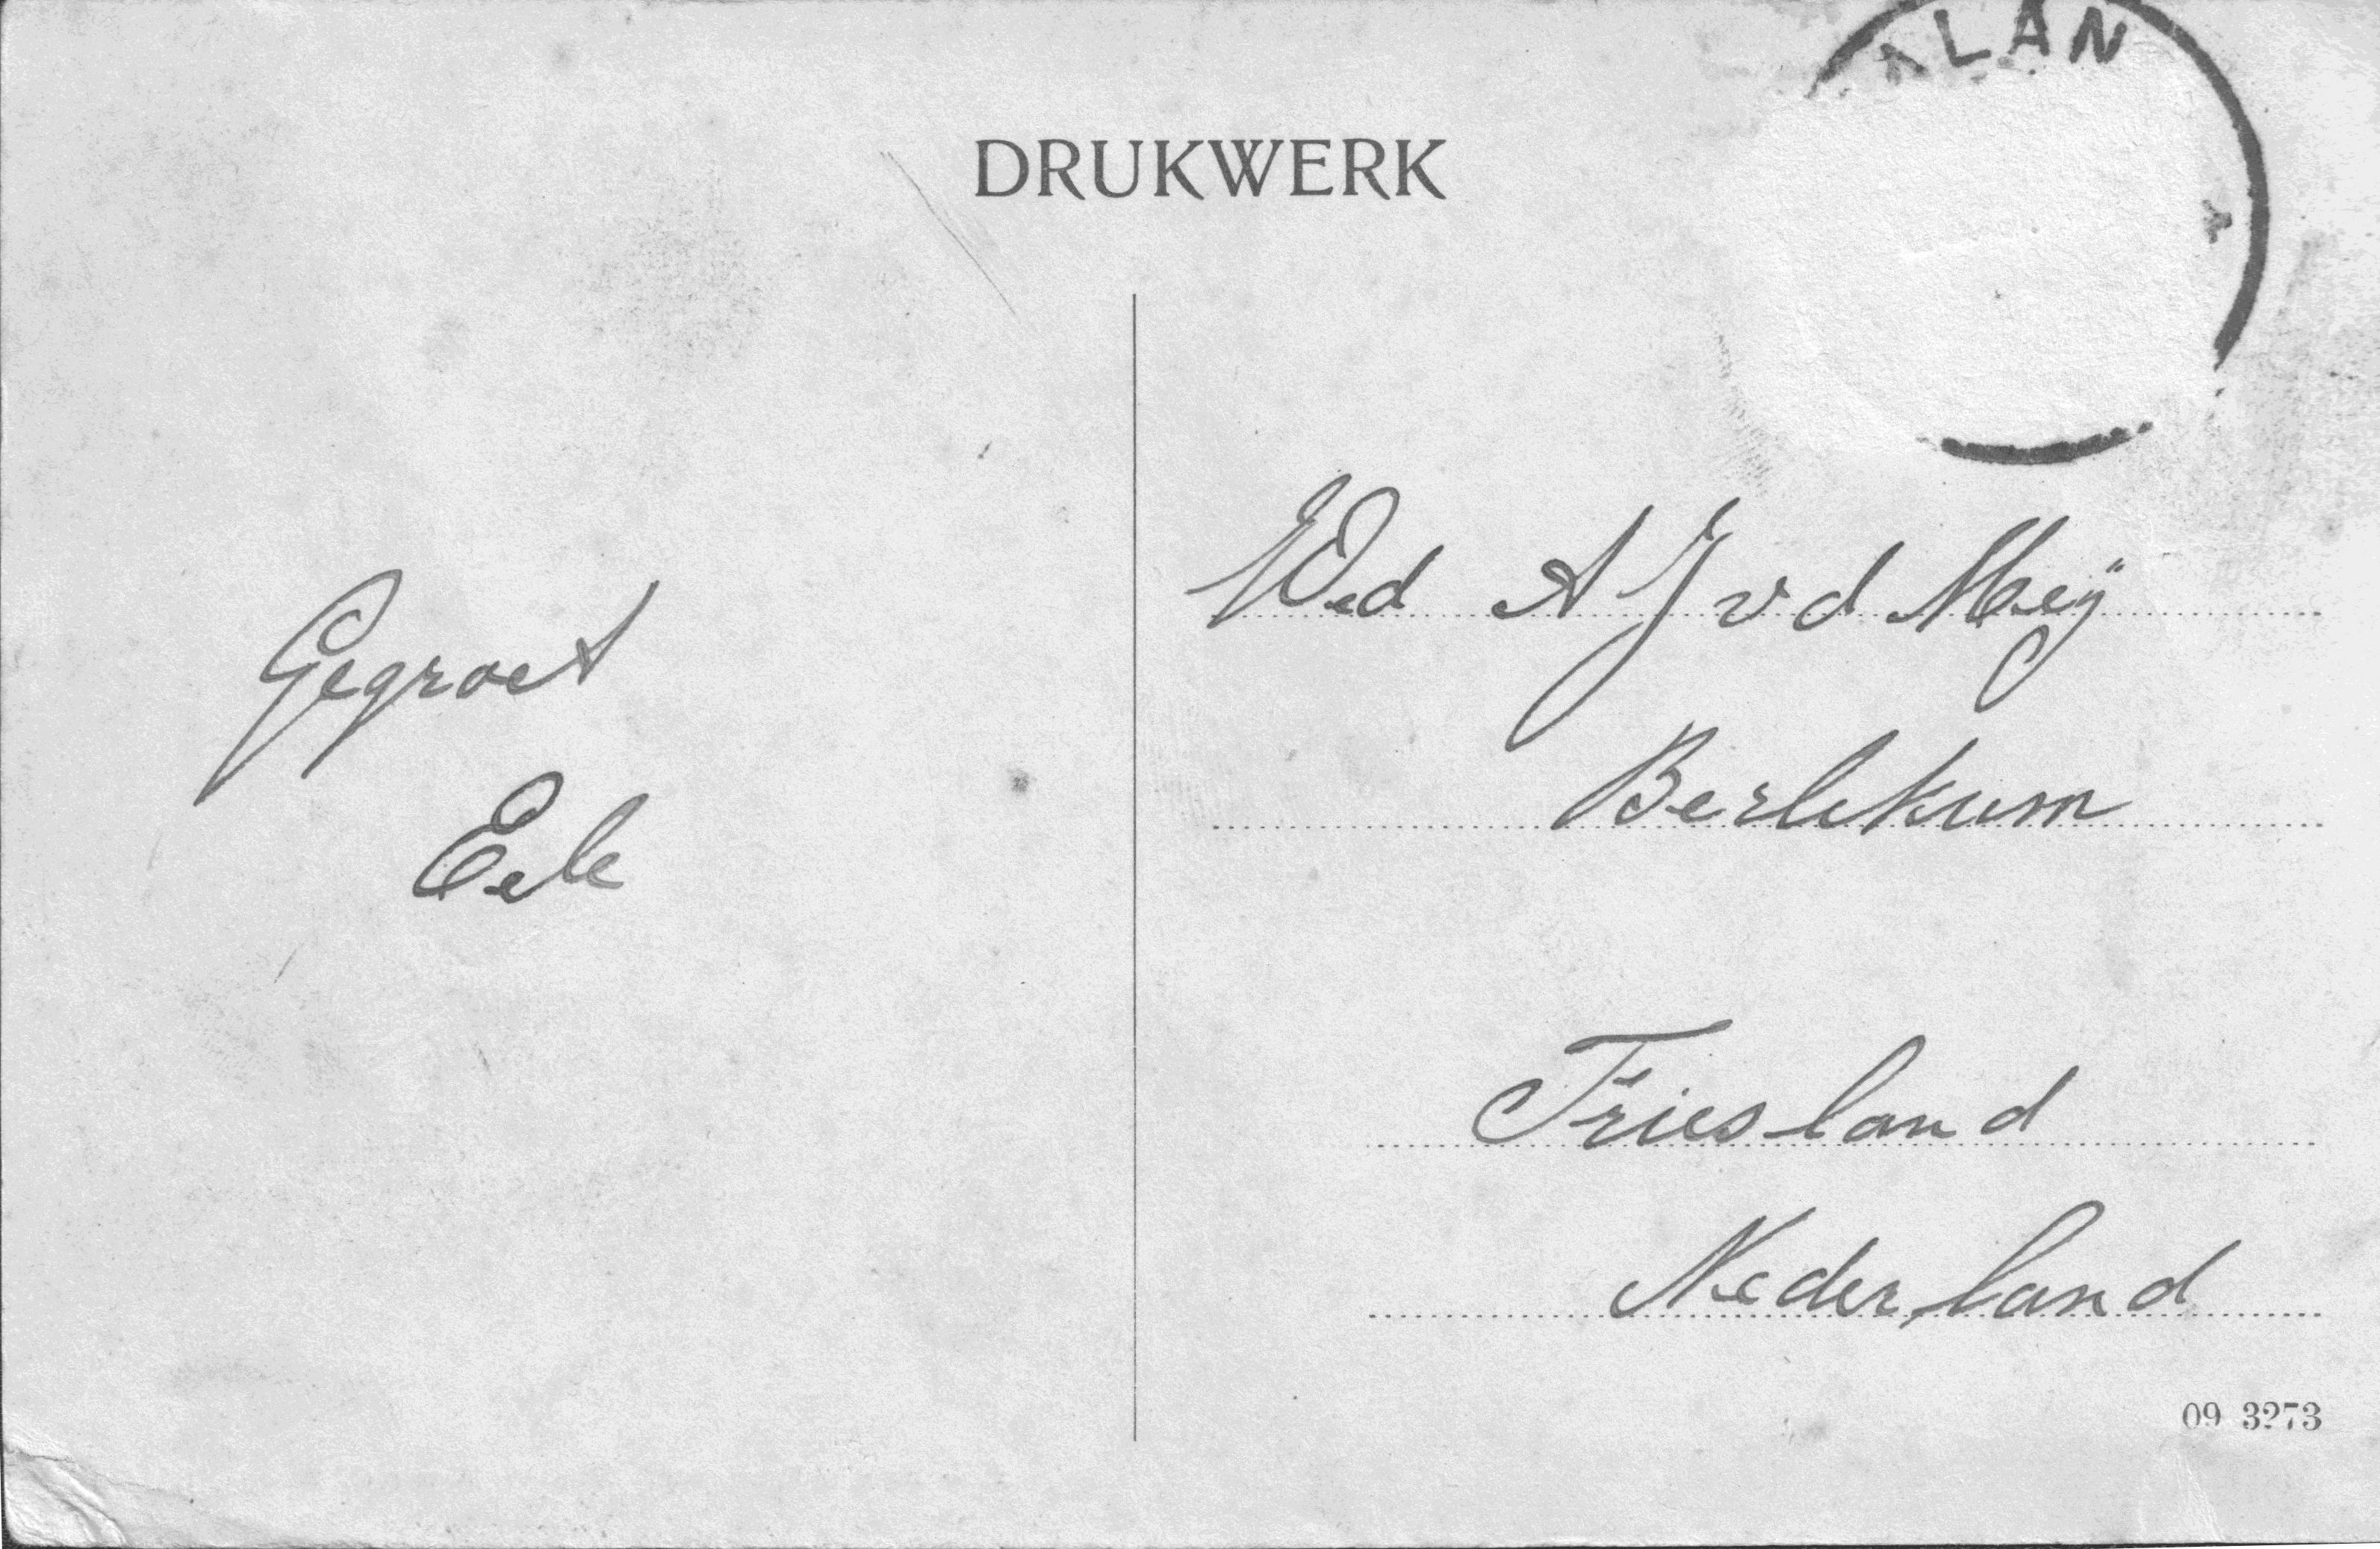 ALAN
DRUKWERK
Gegroet
Eele
Wed A J v d Meÿ
Berlikum
Friesland
Nederland
09 3273